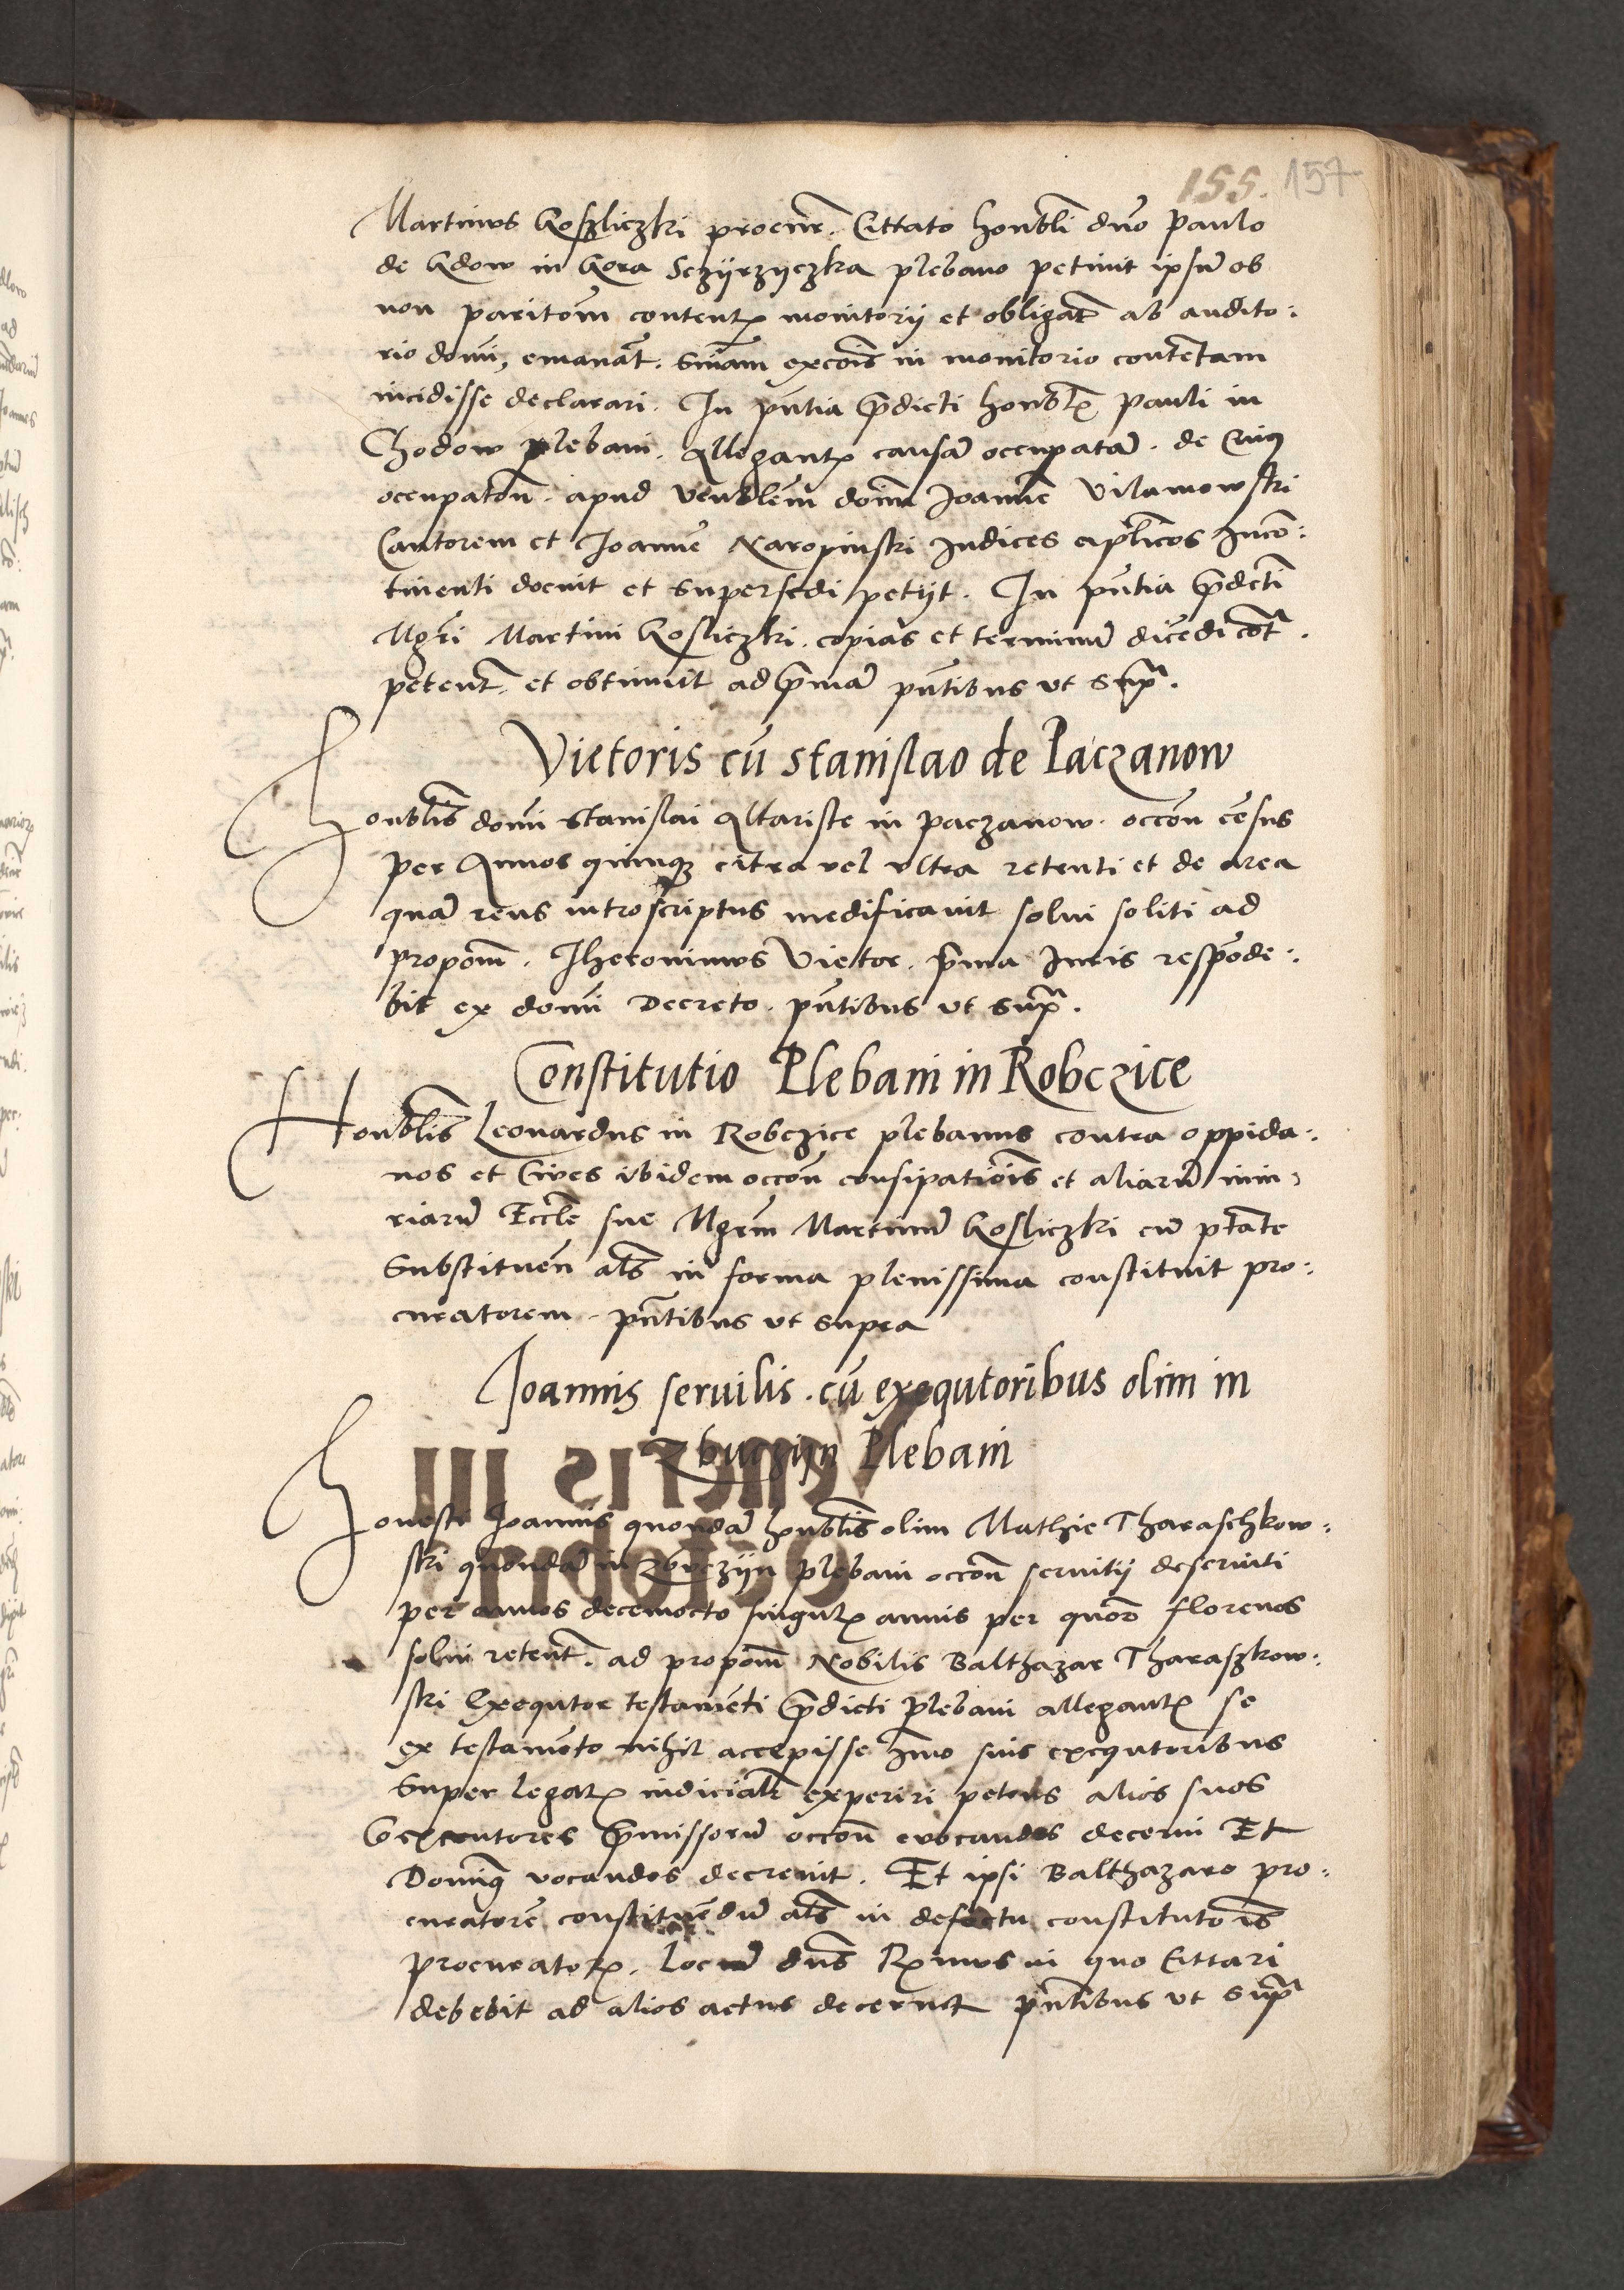 155. 157
Martinus Goszliczki procūr. Cittato honōbli dno Paulo
de Gdow in Gora Sczyrzyczka plebano petivit ipsū ob
non paritōm content. monitorij et obligāt ab audito:
rio domī, emanāt. sniam excōis in monitorio contentam
incidisse declarari. In pntia predicti honōbl. Pauli in
Chodow plebani. Allegant. causā occupatā. de Cuius
occupatōn. apud venblēm doīm Joannē Vilamowski
Cantorem et Joannē Karopinski Judices aplicos Incō:
tinenti docuit et supersedi petijt. In pntia predcti
Mgri Martini Gosliczki. copias et terminū dicēdi cōt.
petent. et obtinuit ad primā pntibus ut supra.
Victoris cū stanislao de Paczanow
Honōblis domī Stanislai Altariste in Paczanow. occōn cēsus
per Annos quinq citra vel ultra retenti et de area
quā reus introscriptus inedificavit solvi soliti ad
propoōm. Jheronimus Victor. prima Juris respōde:
bit ex domī Decreto. pntibus ut supra.
Constitutio Plebani in Robczice
Honōblis Leonardus in Robczice plebanus contra oppida:
nos et Cives ibidem occōn consipatiōis et aliarū iniu:
riarū Ecclē sue Mgrm Martinū Gosliczki cū ptāte
Substituēn als in forma plenissima constituit pro:
curatorem. pntibus ut supra
Joannis servilis. cū exequtoribus olim in
Zbuczijn Plebani
Honesti Joannis quondā honōblis olim Mathie Tharaschkow:
ski quondā in Zbuczijn plebani occōn servitij deserviti
per annos decemocto singul. annis per quor florenos
solvi retent. ad propoōm Nobilis Balthazar Tharaszkow:
ski Exequtor testamēti predicti Plebani allegant. se
ex testamēto nihil accepisse Imo suis exequtoribus
super legat. iudicialr experiri petens alios suos
Coexecutores premissorū occōn evocandos decerni Et
Dominus vocandos decrevit. Et ipsi Balthazaro pro:
curatorē constituēdū als in defectu constitutiōis
procurator. Locum dns Rmus in quo Cittari
debebit ad alios actus decernet pntibus ut supra